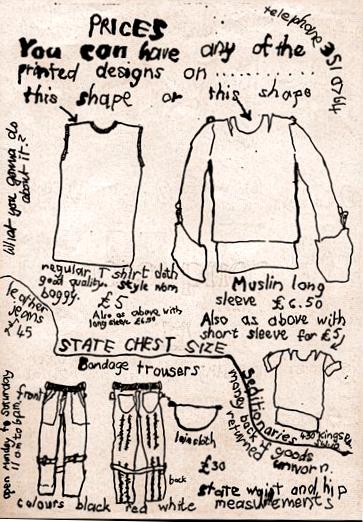 PRICES
telephone 351 0764
You can have any of the
printed designs on ............
this shape or this shape
What you gonna do
about it?
regular T shirt cloth
good quality. style nom
baggy. £5
Also as above with
long sleeve £6.50
Muslin long
sleeve £6.50
Also as above with
short sleeve for £5
leather
jeans
£45
STATE CHEST SIZE
Bondage trousers
Seditionaries 430 Kings Rd
money back
returned
goods
unworn.
open Monday to Saturday
11am to 6pm
front
loin cloth
back
£30
state waist and hip
measurements
colours black red white